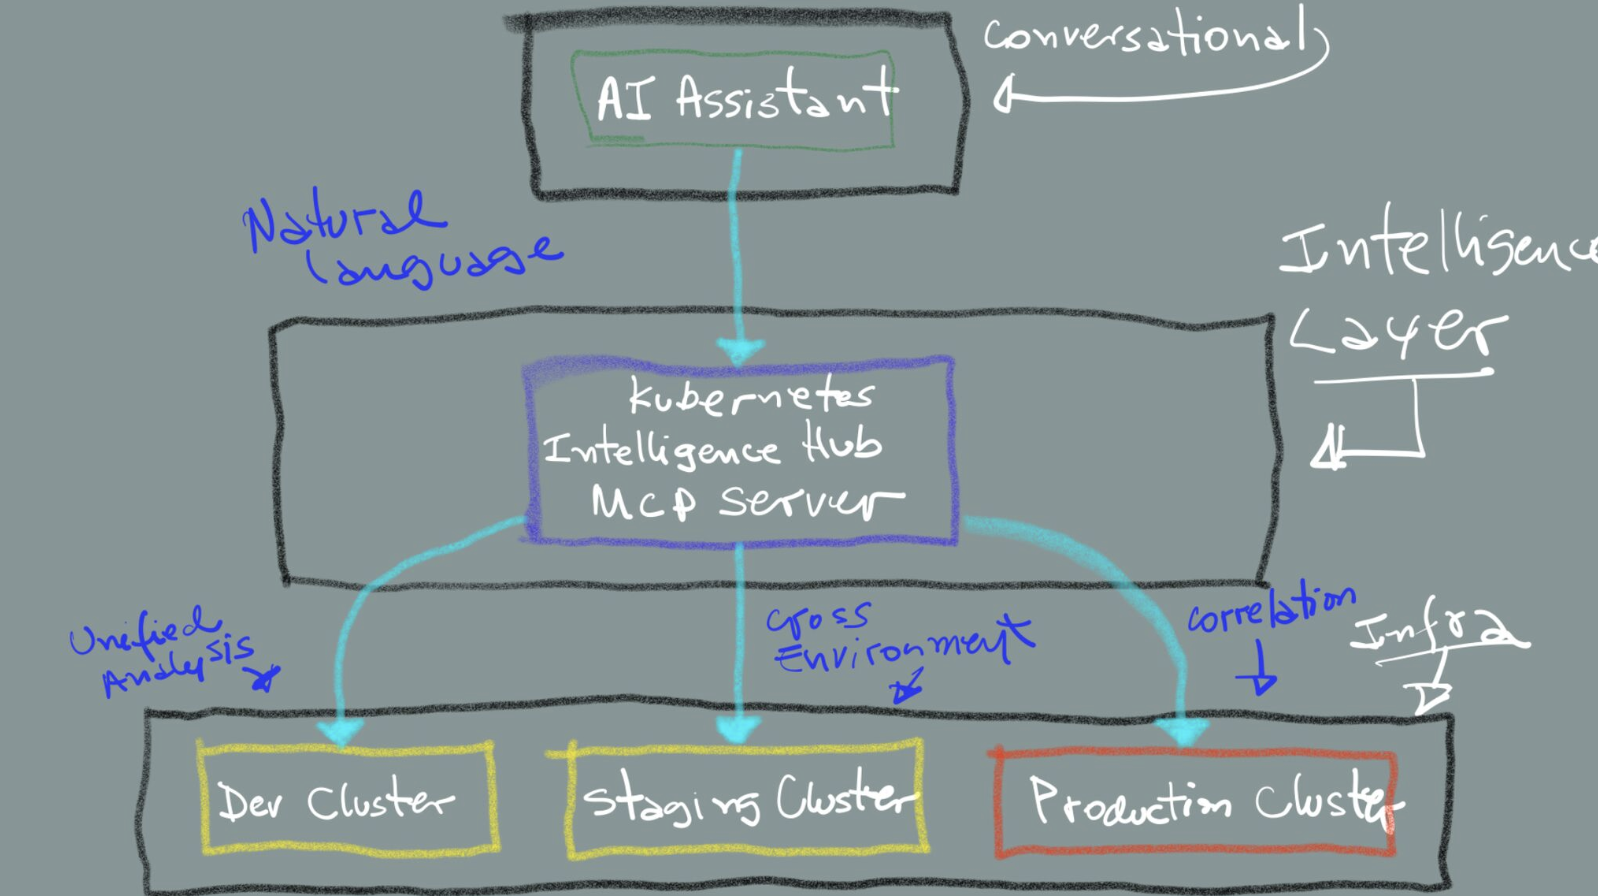 Conversational
AI Assistant
Natural
Language
Intelligence
Layer
Kubernetes
Intelligence Hub
MCP Server
Unified
Analysis
Cross
Environment
Correlation
Infra
Dev Cluster
Staging Cluster
Production Cluster